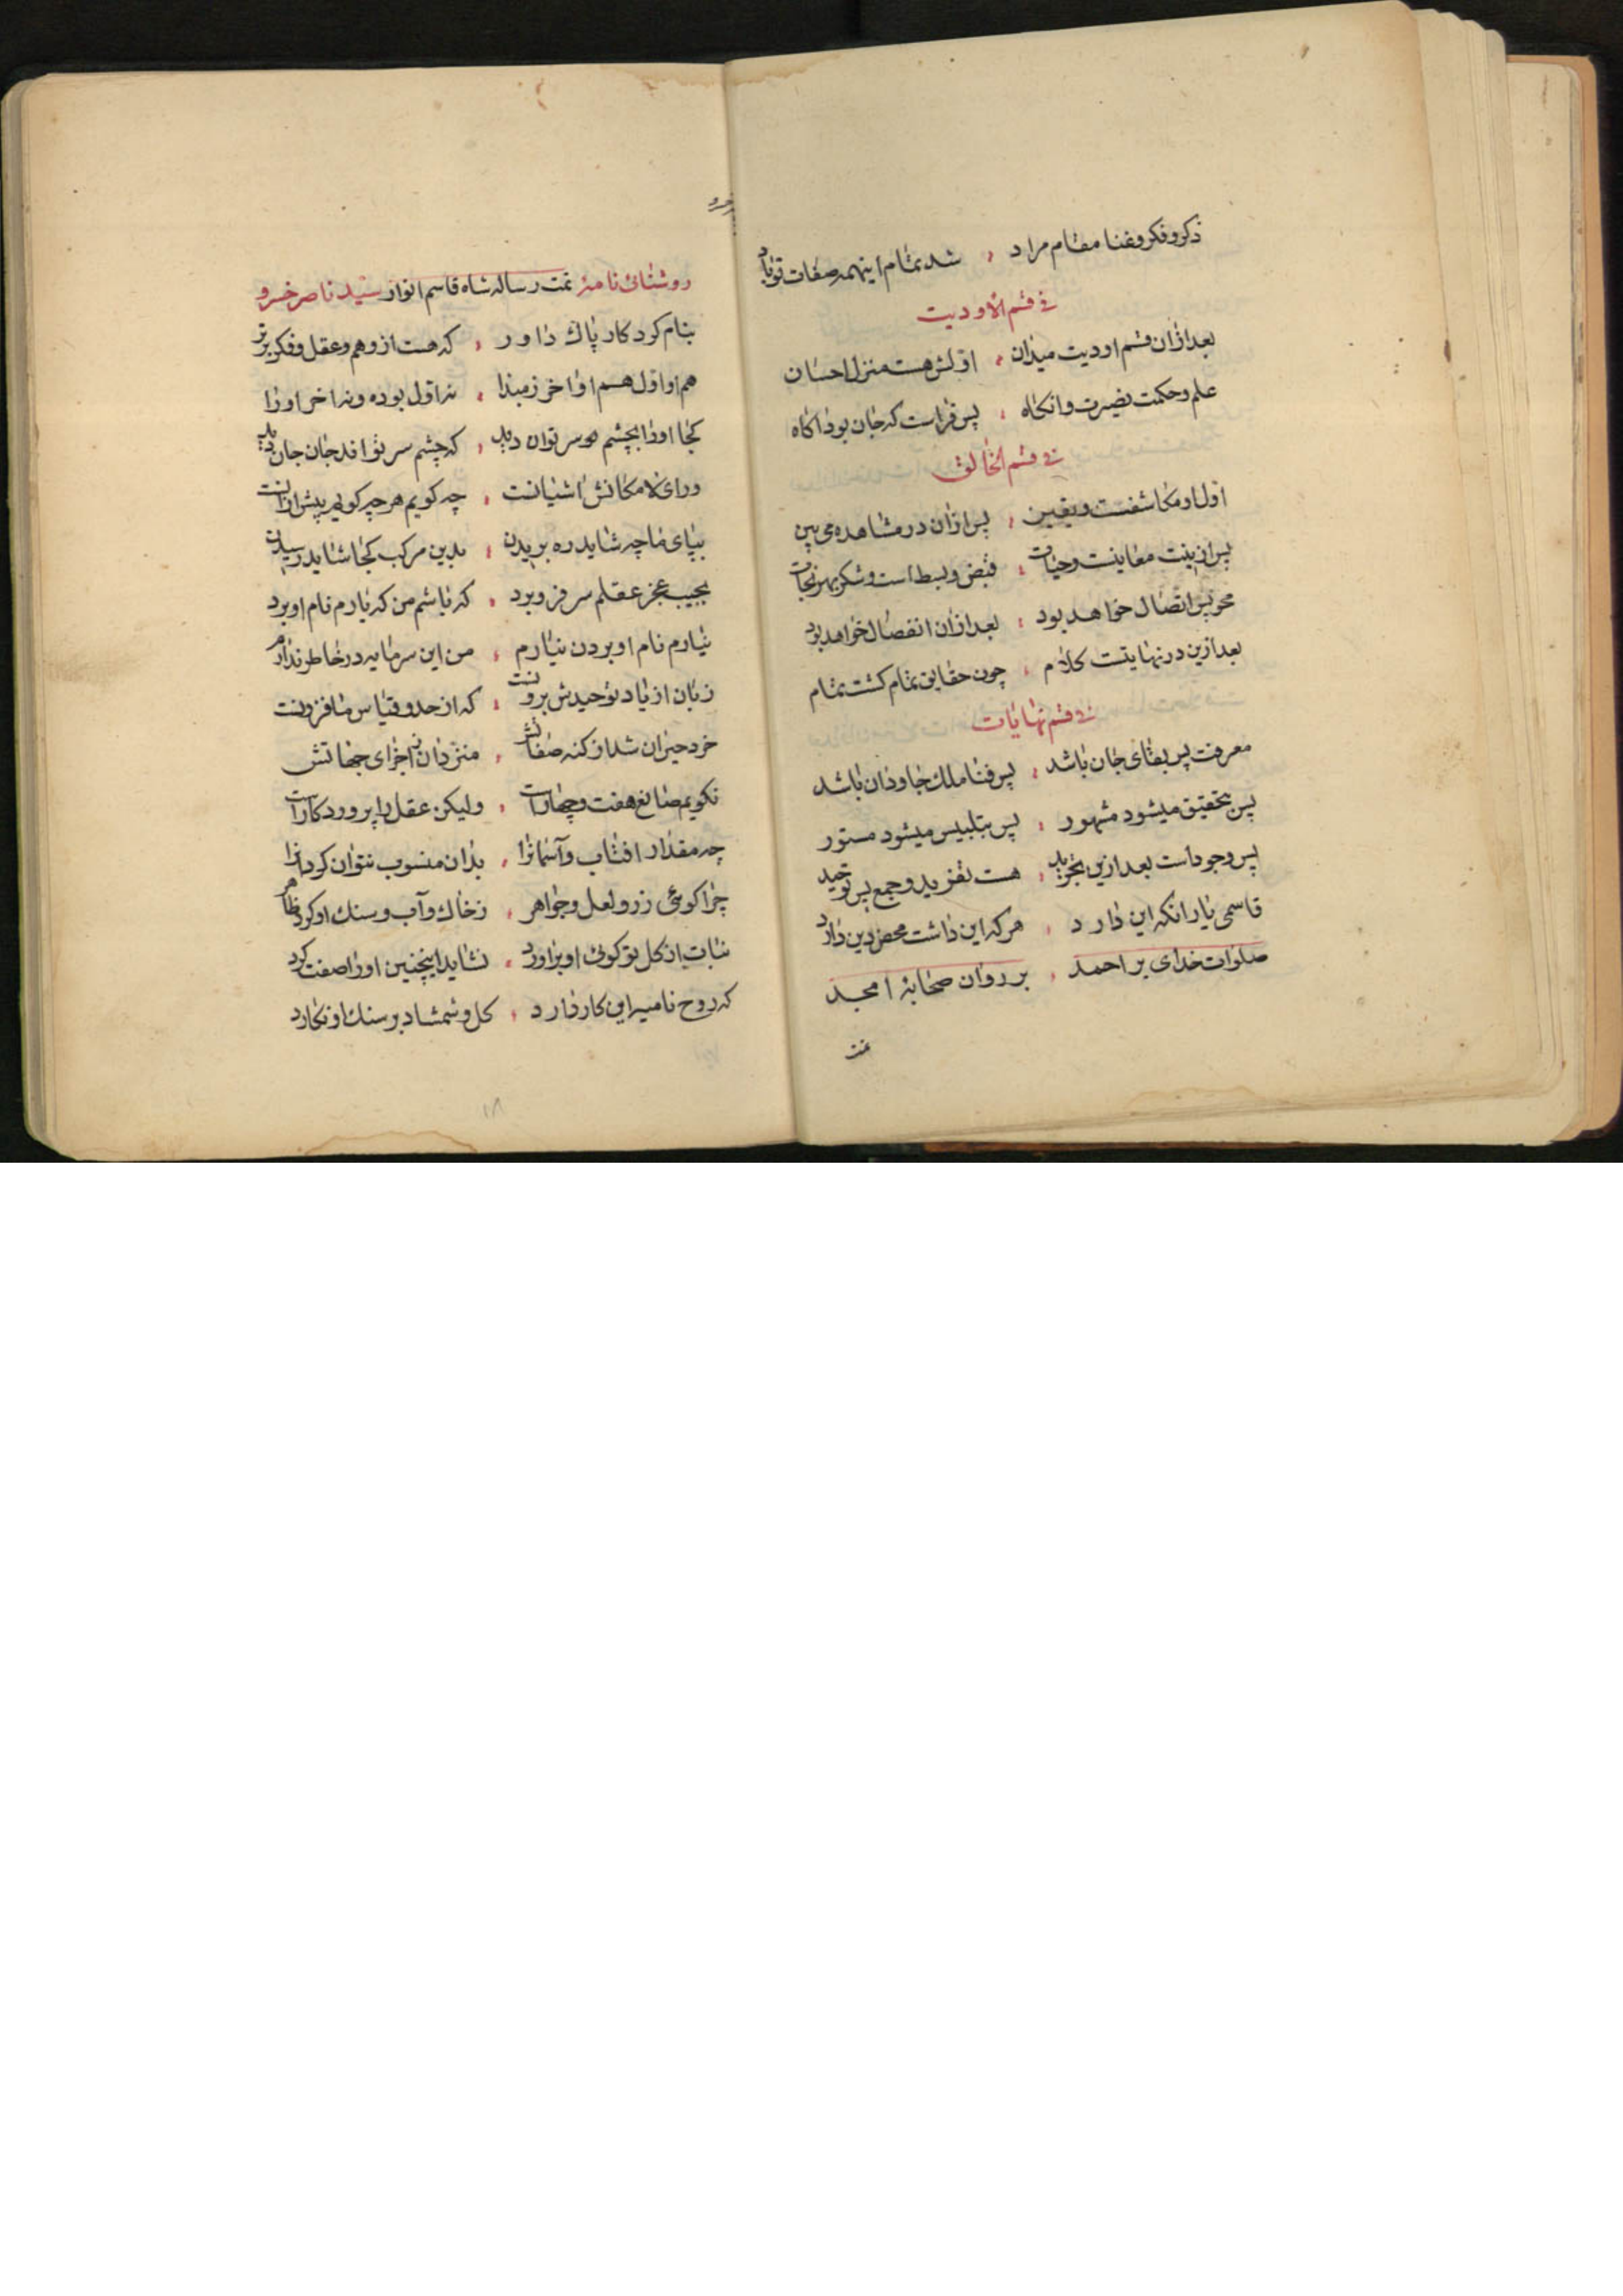 ذکر و فکر و غنا مقام مراد ؛ شد تمام اینهمه صفات تو باد
فی قسم الاودیت
بعد ازان قسم اودیت میدان ؛ اولش هست منزل احسان
علم و حکمت بصیرت وانکاه ؛ پس فراست که جان بود اکاه
فی قسم الخالق
اول او مکاشفت و یقین ؛ پس ازان در مشاهده می بین
پس ازینت معاینت و حیات ؛ قبض و بسط است و شکر بهر نجات
محو پس اتصال خواهد بود ؛ بعد ازان انفصال خواهد بود
بعد ازین در نهایتست کلام ؛ چون حقایق تمام کشت تمام
فی قسم نهایات
معرفت پس بقای جان باشد ؛ پس فنا ملک جاودان باشد
پس بتحقیق میشود مشهور ؛ پس بتلبیس میشود مستور
پس وجود است بعد ازین تجرید ؛ هست تفرید و جمع پس توحید
قاسمی یار انکه این دارد ؛ هر که این داشت محض دین دارد
صلوات خدای بر احمد ؛ بر روان صحابهٔ امجد
تمت
روشنائی نامهٔ تمت رساله شاه قاسم انوار سید ناصر خسرو
بنام کردکار پاک داور ؛ که هست از وهم و عقل و فکر برتر
هم او اول هم او اخر زمبدا ؛ نه اول بوده و نه اخر اورا
کجا اورا بچشم سر توان دید ؛ که چشم سر تواند جان جان دید
ورای لامکانش اشیانست ؛ چه کویم هر چه کویی پیش ازانست
بپای ما چه شاید ره بریدن ؛ بدین مرکب کجا شاید رسیدن
بجیب عجز عقلم سر فرو برد ؛ که باشم من که یارم نام او برد
نیارم نام او بردن نیارم ؛ من این سرمایه در خاطر ندارم
زبان از یاد توحیدش برونست ؛ که از حد و قیاس ما فزونست
خرد حیران شد از کنه صفاتش ؛ منزه دان ز اجرای جهاتش
نکویم صانع هفت و چهارست ؛ ولیکن عقل را پروردکارست
چه مقدار افتاب و آسمانرا ؛ بدان منسوب نتوان کرد انرا
چرا کوئی زر و لعل و جواهر ؛ ز خاک و آب و سنک او کرد ظاهر
نبات از کل تو کوئی او براورد ؛ نشاید اینچنین اورا صفت کرد
که روح نامیه این کار دارد ؛ کل و شمشاد بر سنک او نکارد
۱۸